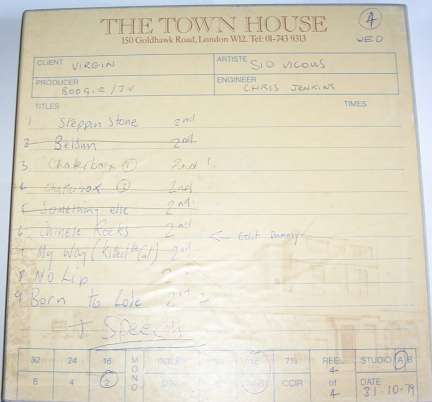 THE TOWN HOUSE
150 Goldhawk Road, London W12. Tel: 01-743 9313
4
WED
CLIENT VIRGIN
ARTISTE SID VICOUS
PRODUCER BOOGIE/JV
ENGINEER CHRIS JENKINS
TITLES TIMES
1 Steppin Stone 2nd
2 Belsun 2nd
3 Chaterbox ① 2nd
4 Chaterbox ② 2nd
5 Something else 2nd
6 Chinese Rocks 2nd
7 My Way (Killed the Cat) 2nd
8 No Lip 2
9 Born to Lose 2nd 2
I Speech
32 24 16 MONO 7½ REEL STUDIO A B
8 4 2 CCIR 4 of 4 DATE 31-10-79